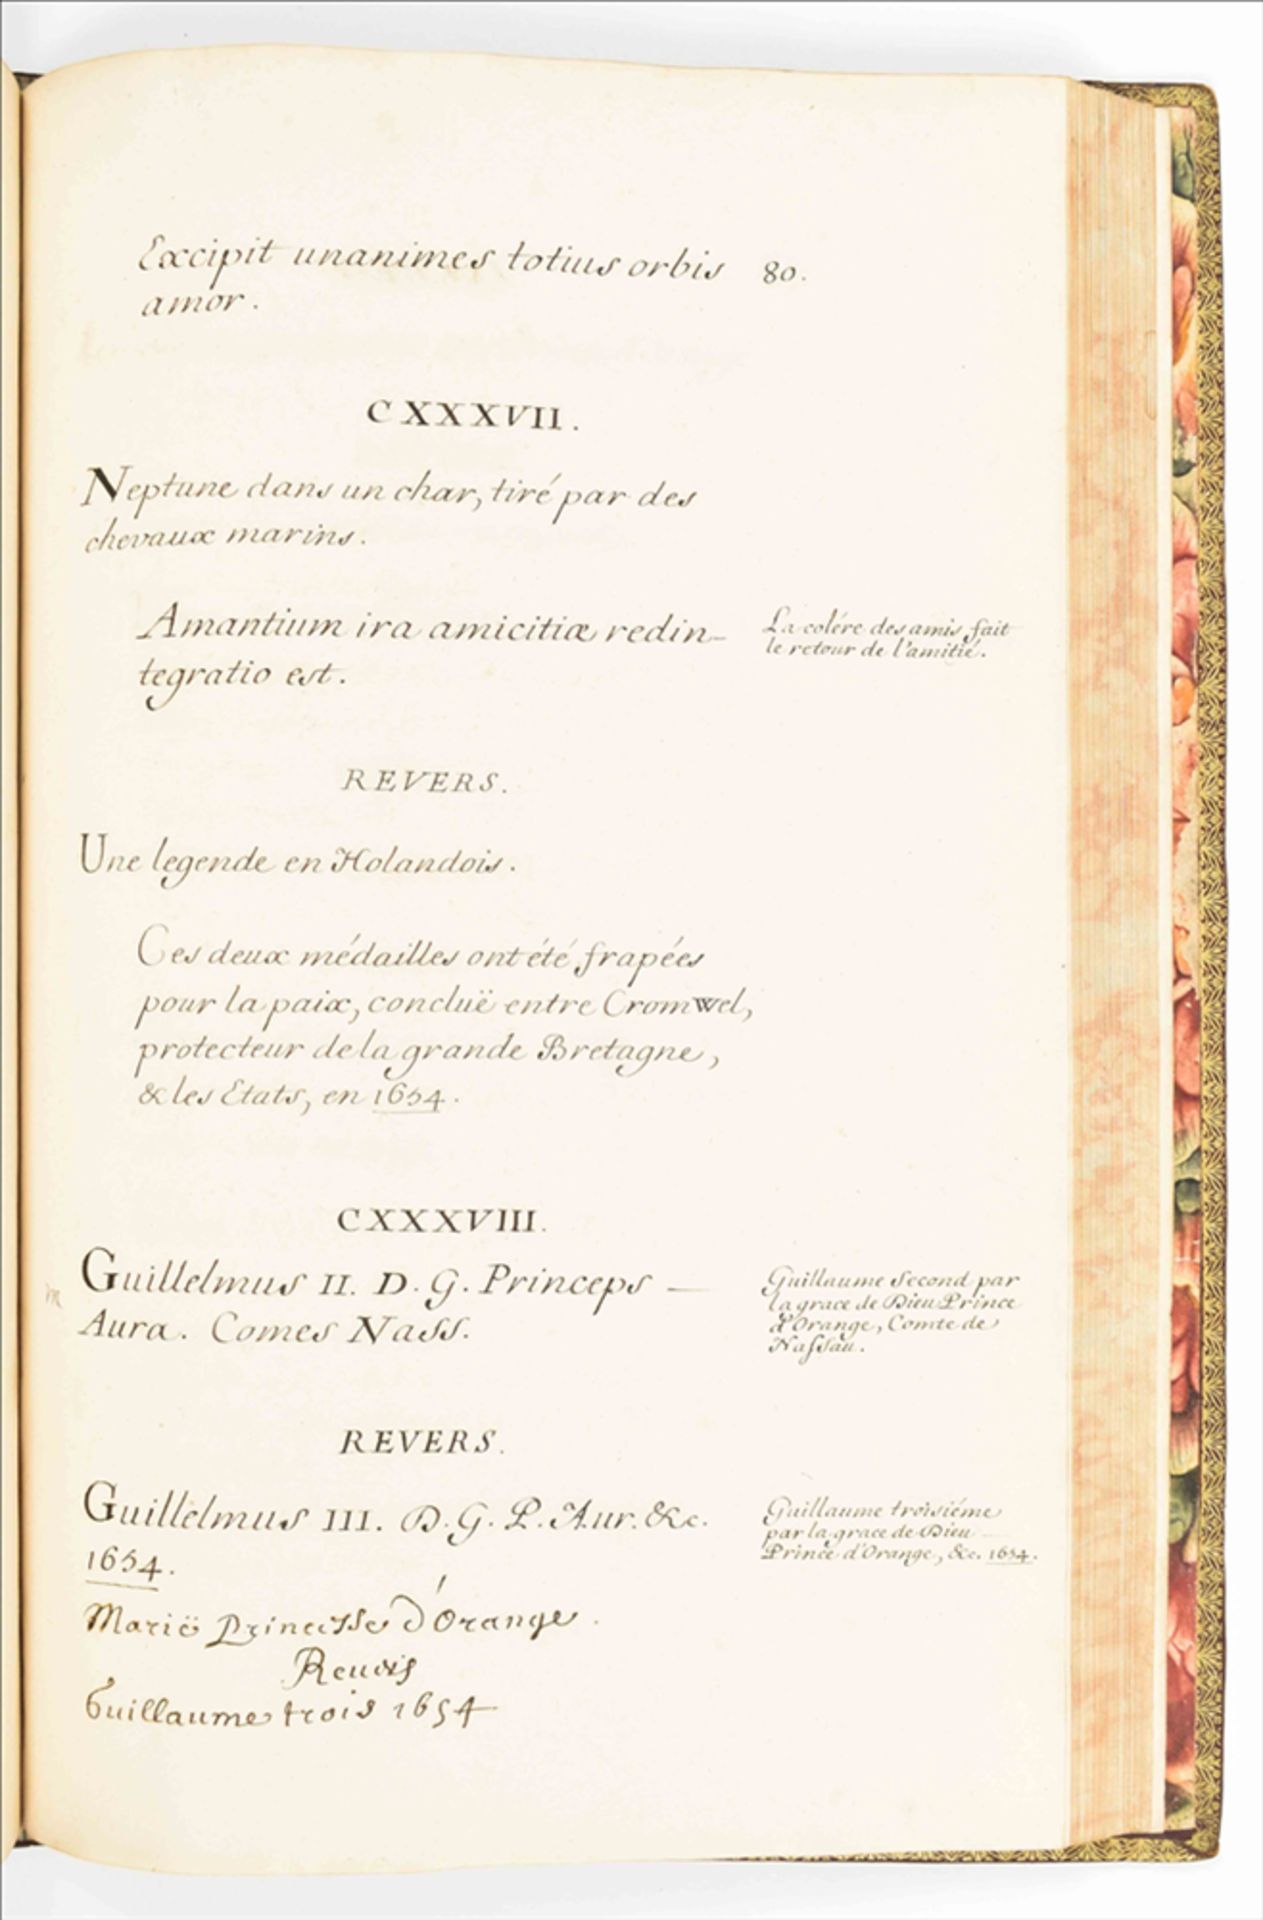 Excipit unanimes totius orbis 80.
amor.
CXXXVII.
Neptune dans un char, tiré par des
chevaux marins.
Amantium ira amicitiæ redin-
tegratio est.
La colére des amis fait
le retour de l'amitié.
REVERS.
Une legende en Holandois.
Ces deux médailles ont été frapées
pour la paix, concluë entre Cromwel,
protecteur de la grande Bretagne,
& les Etats, en 1654.
CXXXVIII.
Guillelmus II. D. G. Princeps —
Aura. Comes Nass.
Guillaume second par
la grace de Dieu Prince
d'Orange, Comte de
Nassau.
REVERS.
Guillelmus III. D. G. P. Aur. &c.
1654.
Guillaume troisiéme
par la grace de Dieu —
Prince d'Orange, &c. 1654.
Marië Princesse d'Orange.
Guillaume trois 1654